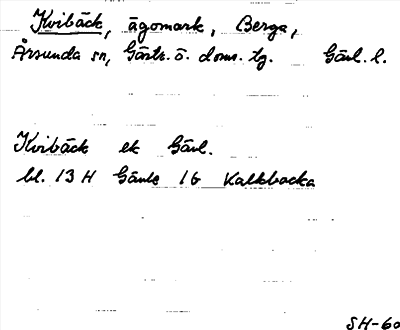 Kvibäck, ägomark, Berga,
Årsunda sn, Gästr. ö. doms. tg. Gävl. l.
Kvibäck ek Gävl.
bl. 13 H Gävle 1 G Kalkbacka
SH-60